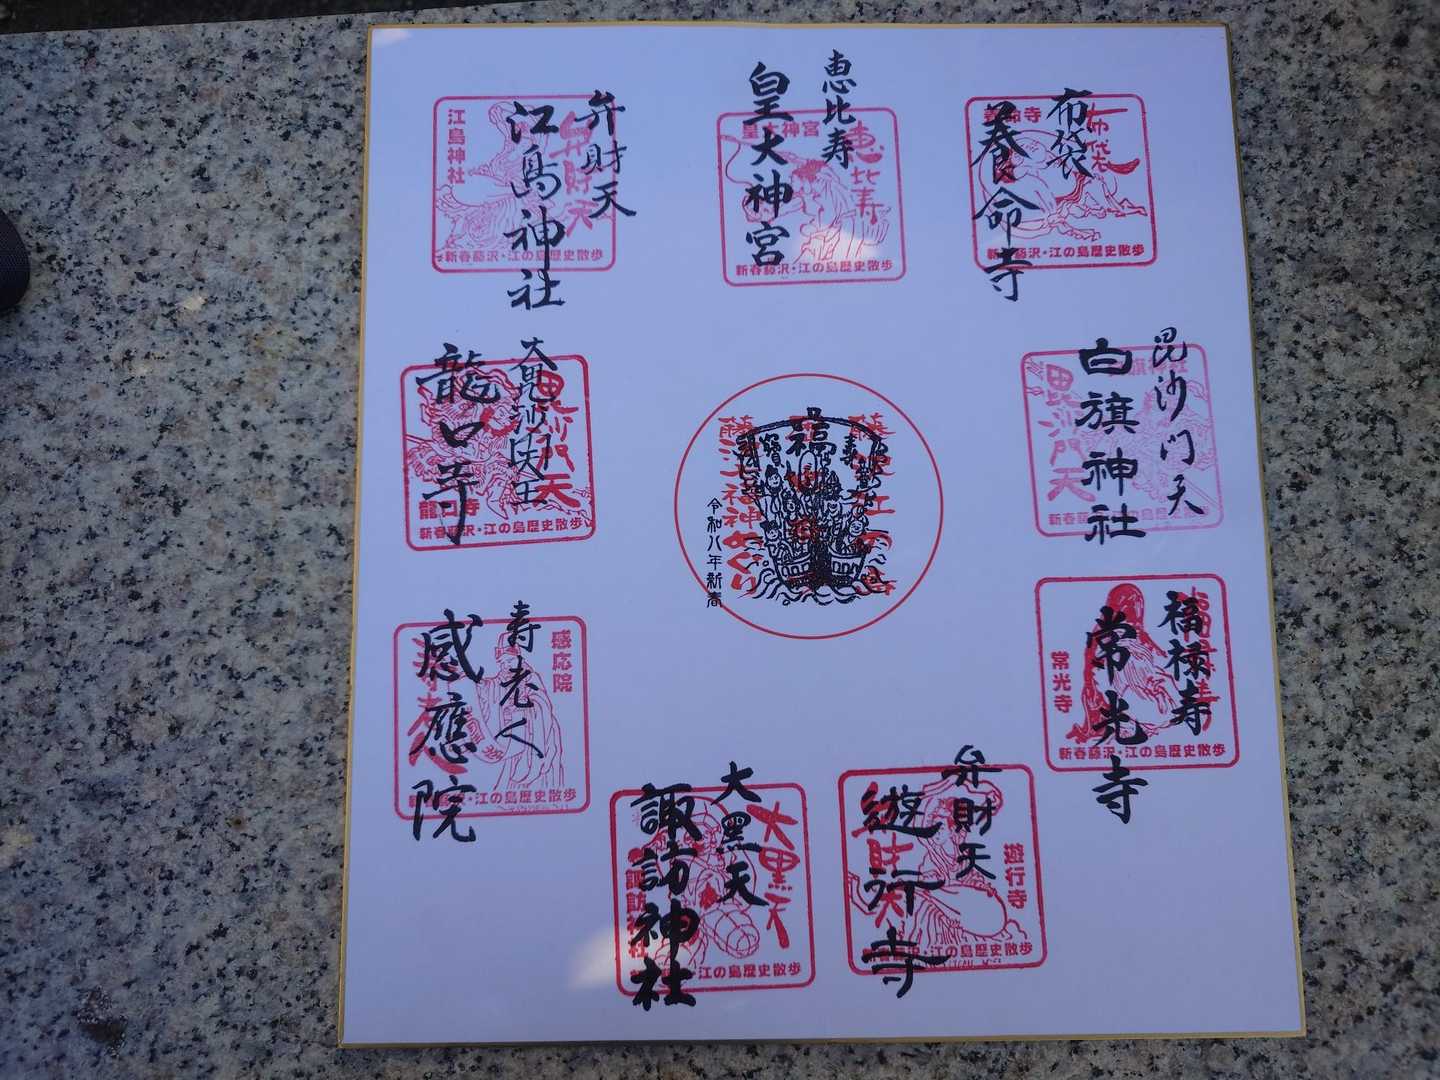 恵比寿
皇大神宮
皇大神宮
恵比寿
新春藤沢・江の島歴史散歩
布袋
養命寺
養命寺
布袋
新春藤沢・江の島歴史散歩
毘沙門天
白旗神社
毘沙門天
新春藤沢・江の島歴史散歩
福禄寿
常光寺
常光寺
新春藤沢・江の島歴史散歩
弁財天
遊行寺
遊行寺
大黒天
諏訪神社
大黒天
諏訪神社
江の島歴史散歩
寿老人
感應院
感応院
江の島歴史散歩
龍口寺
毘沙門天
龍口寺
新春藤沢・江の島歴史散歩
弁財天
江島神社
江島神社
弁財天
新春藤沢・江の島歴史散歩
福
寿
藤沢七福神めぐり
令和八年新春